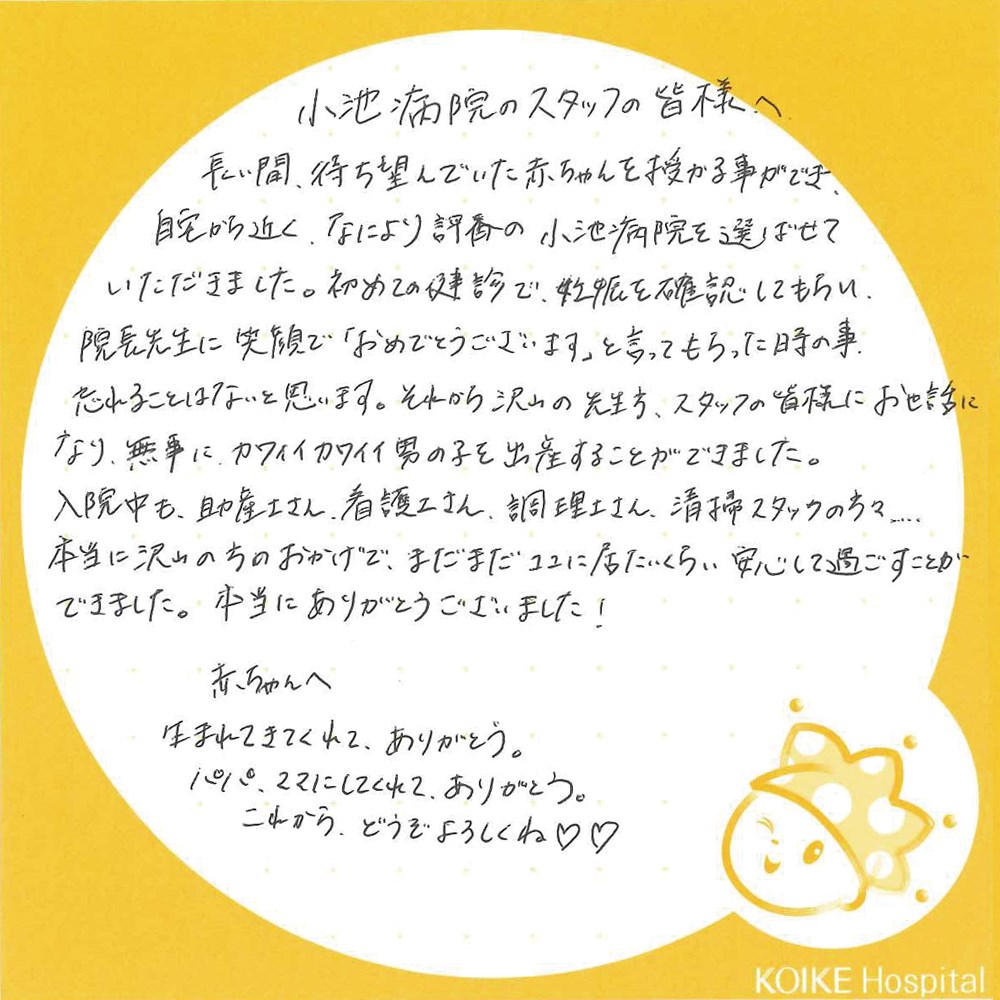 小池病院のスタッフの皆様へ
長い間、待ち望んでいた赤ちゃんを授かる事ができ、
自宅から近く、なにより評番の小池病院を選ばせて
いただきました。初めての健診で、妊娠を確認してもらい、
院長先生に笑顔で「おめでとうございます」と言ってもらった時の事、
忘れることはないと思います。それから沢山の先生方、スタッフの皆様にお世話に
なり、無事に、カワイイカワイイ男の子を出産することができました。
入院中も、助産士さん、看護士さん、調理士さん、清掃スタッフの方々……
本当に沢山の方のおかげで、まだまだココに居たいくらい安心して過ごすことが
できました。本当にありがとうございました！
赤ちゃんへ
生まれてきてくれて、ありがとう。
パパ、ママにしてくれて、ありがとう。
これから、どうぞよろしくね♡♡
KOIKE Hospital